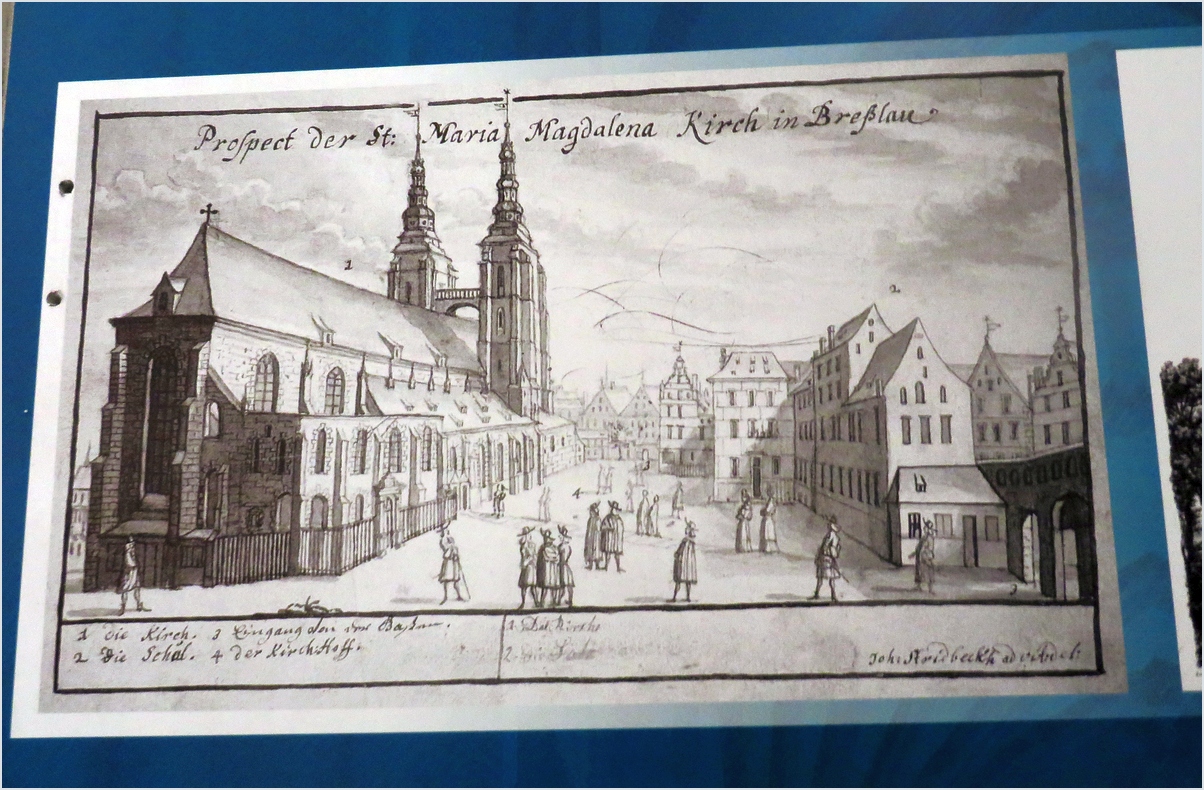 Prospect der St: Maria Magdalena Kirch in Breßlau
1
2
4
3
1 die Kirch. 3 Eingang
2 Die Schul. 4 der Kirch Hoff.
1. Die Kirche
2. die
Joh: Stridbeckh ad viv: del: